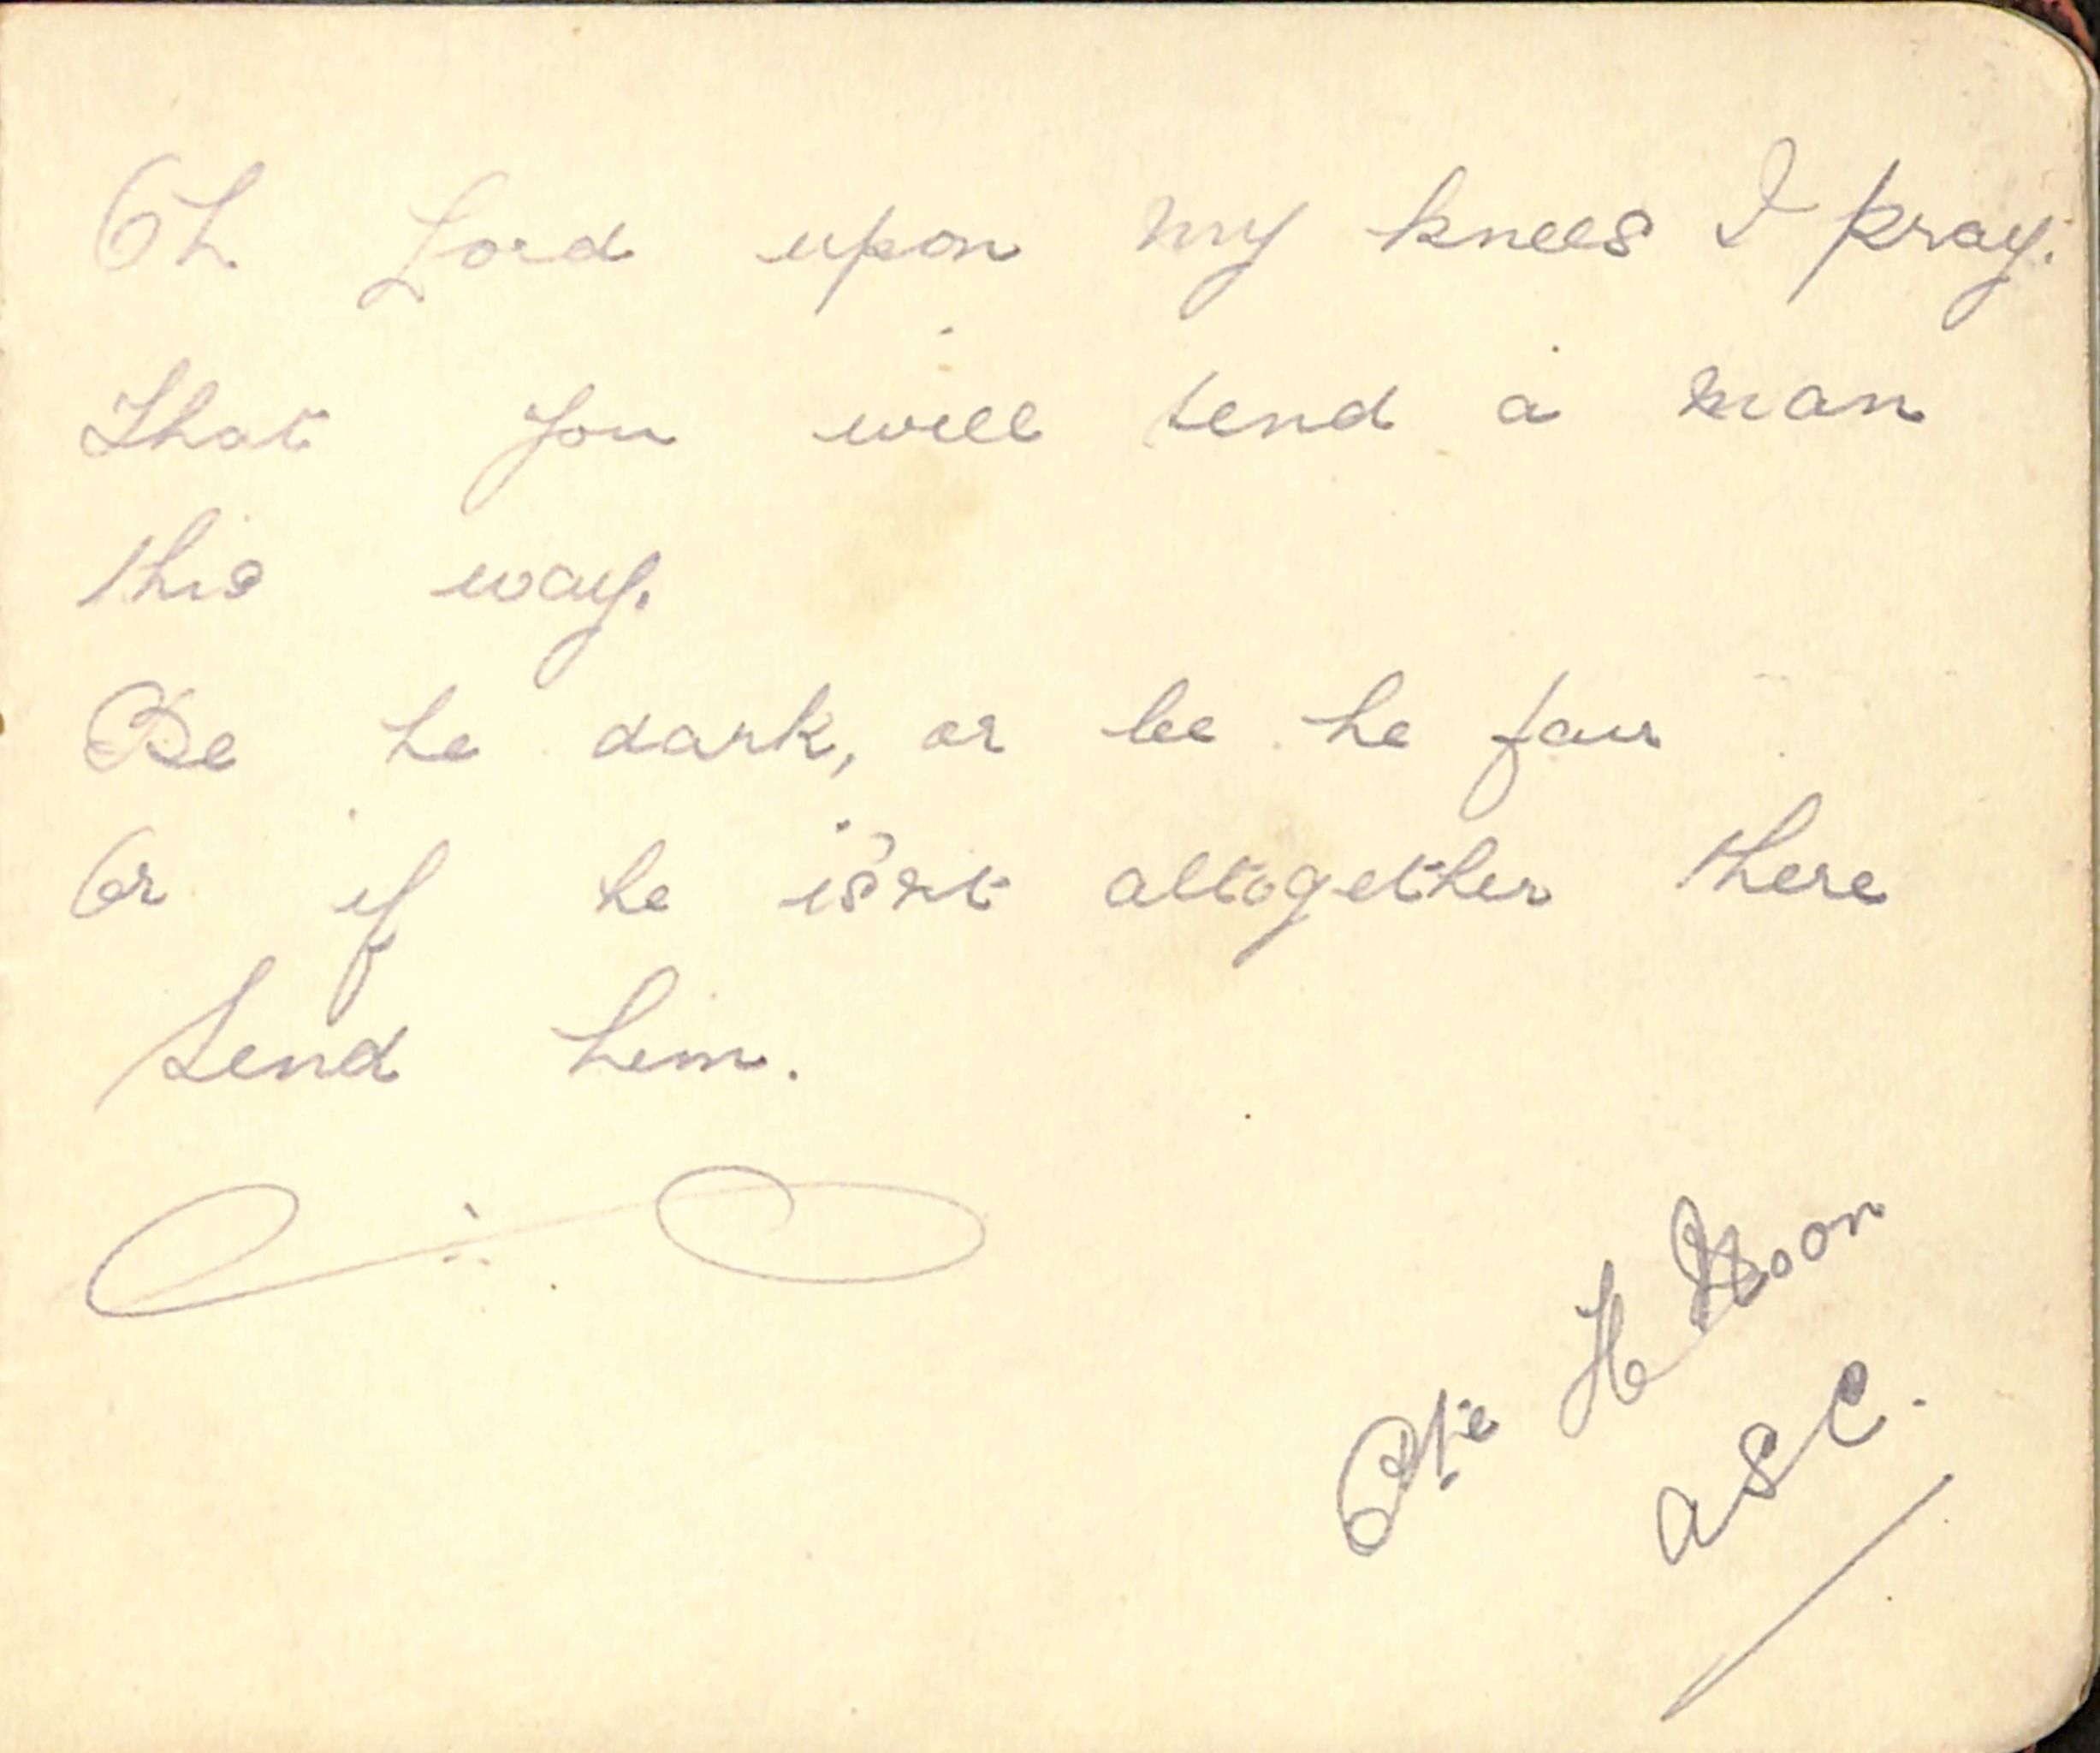 Oh Lord upon my knees I pray.
That you will send a man
this way.
Be he dark, or be he fair
Or if he isn't altogether there
Send him.
Pte H Moon
ASC.